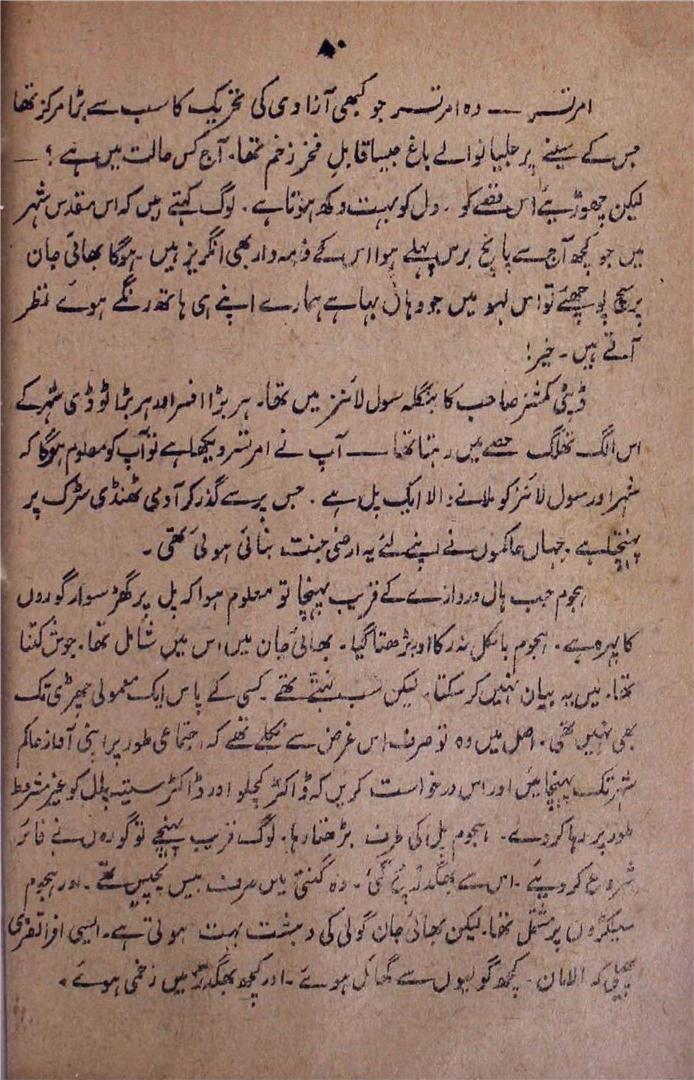 ۸۰
امرتسر ــــ وہ امرتسر جو کبھی آزادی کی تحریک کا سب سے بڑا مرکز تھا
جس کے سینے پر جلیانوالے باغ جیسا قابلِ فخر زخم تھا۔ آج کس حالت میں ہے؟ ــ
لیکن چھوڑیئے اس قصے کو ۔ دل کو بہت دکھ ہوتا ہے۔ لوگ کہتے ہیں کہ اس مقدس شہر
میں جو کچھ آج سے پانچ برس پہلے ہوا اس کے ذمہ دار بھی انگریز ہیں ۔ ہوگا بھائی جان
پر سچ پوچھئے تو اس لہو میں جو وہاں بہا ہے ہمارے اپنے ہی ہاتھ رنگے ہوئے نظر
آتے ہیں ۔ خیر!
ڈپٹی کمشنر صاحب کا بنگلہ سول لائنز میں تھا۔ ہر بڑا افسر اور ہر بڑا ٹوڈی شہر کے
اس الگ تھلگ حصے میں رہتا تھا ــــ آپ نے امرتسر دیکھا ہے تو آپ کو معلوم ہوگا کہ
شہر اور سول لائنز کو ملانے والا ایک پل ہے ۔ جس پر سے گذر کر آدمی ٹھنڈی سڑک پر
پہنچتا ہے۔ جہاں حاکموں نے اپنے لئے یہ ارضی جنت بنائی ہوئی تھی ۔
ہجوم جب ہال دروازے کے قریب پہنچا تو معلوم ہوا کہ پل پر گھڑ سوار گوروں
کا پہرہ ہے۔ ہجوم بالکل نہ رکا اور بڑھتا گیا۔ بھائی جان میں اس میں شامل تھا۔ جوش کتنا
تھا۔ میں یہ بیان نہیں کر سکتا۔ لیکن سب نہتے تھے ۔ کسی کے پاس ایک معمولی چھڑی تک
بھی نہیں تھی۔ اصل میں وہ تو صرف اس غرض سے نکلے تھے کہ اجتماعی طور پر اپنی آواز حاکم
شہر تک پہنچائیں اور اس درخواست کریں کہ ڈاکٹر کچلو اور ڈاکٹر ستیہ پال کو غیر مشروط
طور پر رہا کر دے۔ ہجوم پل کی طرف بڑھتا رہا۔ لوگ قریب پہنچے تو گوروں نے فائر
شروع کر دیئے ۔ اس سے بھگدڑ مچ گئی ۔ وہ گنتی میں صرف بیس پچیس تھے ۔ اور ہجوم
سینکڑوں پر مشتمل تھا۔ لیکن بھائی جان گولی کی دہشت بہت ہوتی ہے۔ ایسی افراتفری
پھیلی کہ الامان ۔ کچھ گولیوں سے گھائل ہوئے ۔ اور کچھ بھگدڑ میں زخمی ہوئے ۔